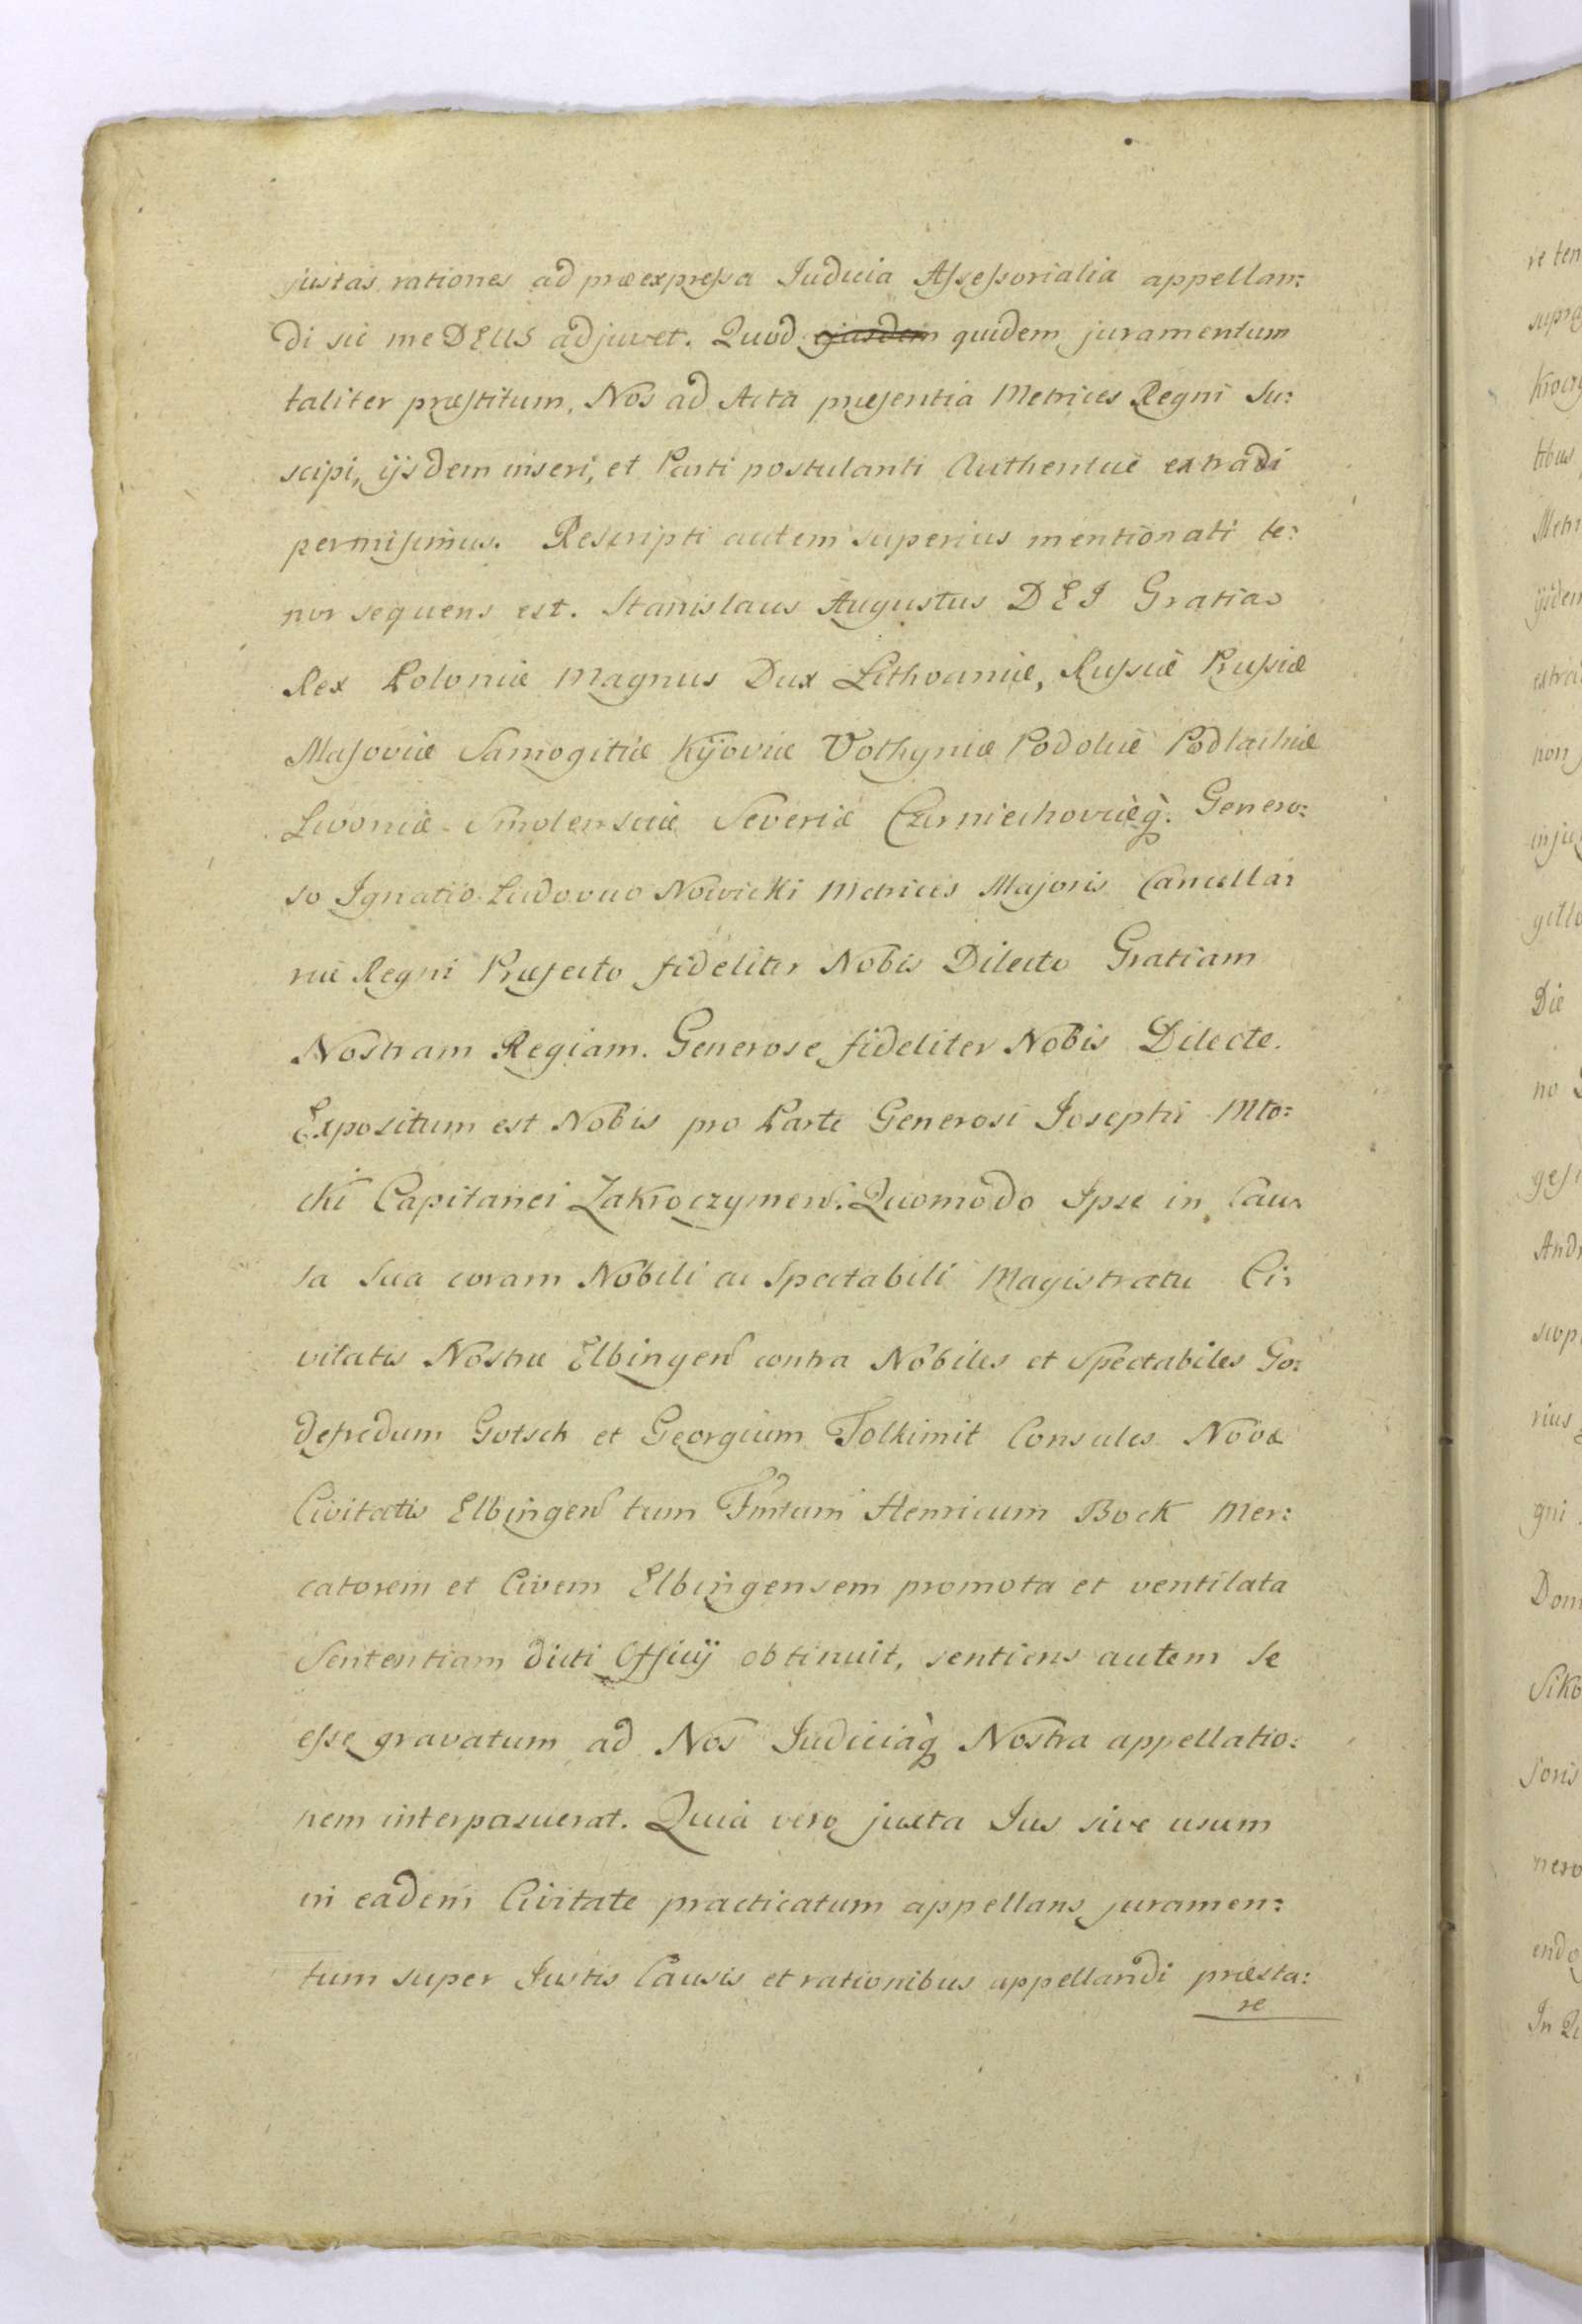 justas rationes ad præexpressa Iudicia Assessorialia appellan:
di sic me DEUS adjuvet. Quod ejusdem quidem juramentum
taliter præstitum, Nos ad Acta præsentia Metrices Regni Su:
scipi, ijsdem inseri, et Parti postulanti Authenticè extradi
permisimus. Rescripti autem superius mentionati te:
nor sequens est. Stanislaus Augustus DEI Gratia
Rex Poloniæ Magnus Dux Lithvaniæ, Russiæ Prussiæ
Masoviæ Samogitiæ Kÿoviæ Volhyniæ Podoliæ Podlachiæ
Livoniæ Smolensciæ Severiæ Czerniechoviæq̀. Genero:
so Ignatio Ludovico Nowicki Metrices Majoris Cancella:
riæ Regni Præfecto fideliter Nobis Dilecto Gratiam
Nostram Regiam. Generose fideliter Nobis Dilecte.
Expositum est Nobis pro Parte Generosi Josephi Mło:
cki Capitanei Zakroczymen: Quomodo Ipse in Cau:
sa sua coram Nobili ac Spectabili Magistratu Ci:
vitatis Nostræ Elbingen contra Nobiles et Spectabiles Go:
defredum Gotsch et Georgium Tolkimit Consules Novæ
Civitatis Elbingen tum Fmtum Henricum Bock Mer:
catorem et Civem Elbingensem promota et ventilata
Sententiam dicti Officij obtinuit, sentiens autem se
esse gravatum ad Nos Iudiciaq̀ Nostra appellatio:
nem interpasuerat. Quia vero juxta Ius sive usum
in eadem Civitate practicatum appellans juramen:
tum super Iustis Causis et rationibus appellandi præsta:
re